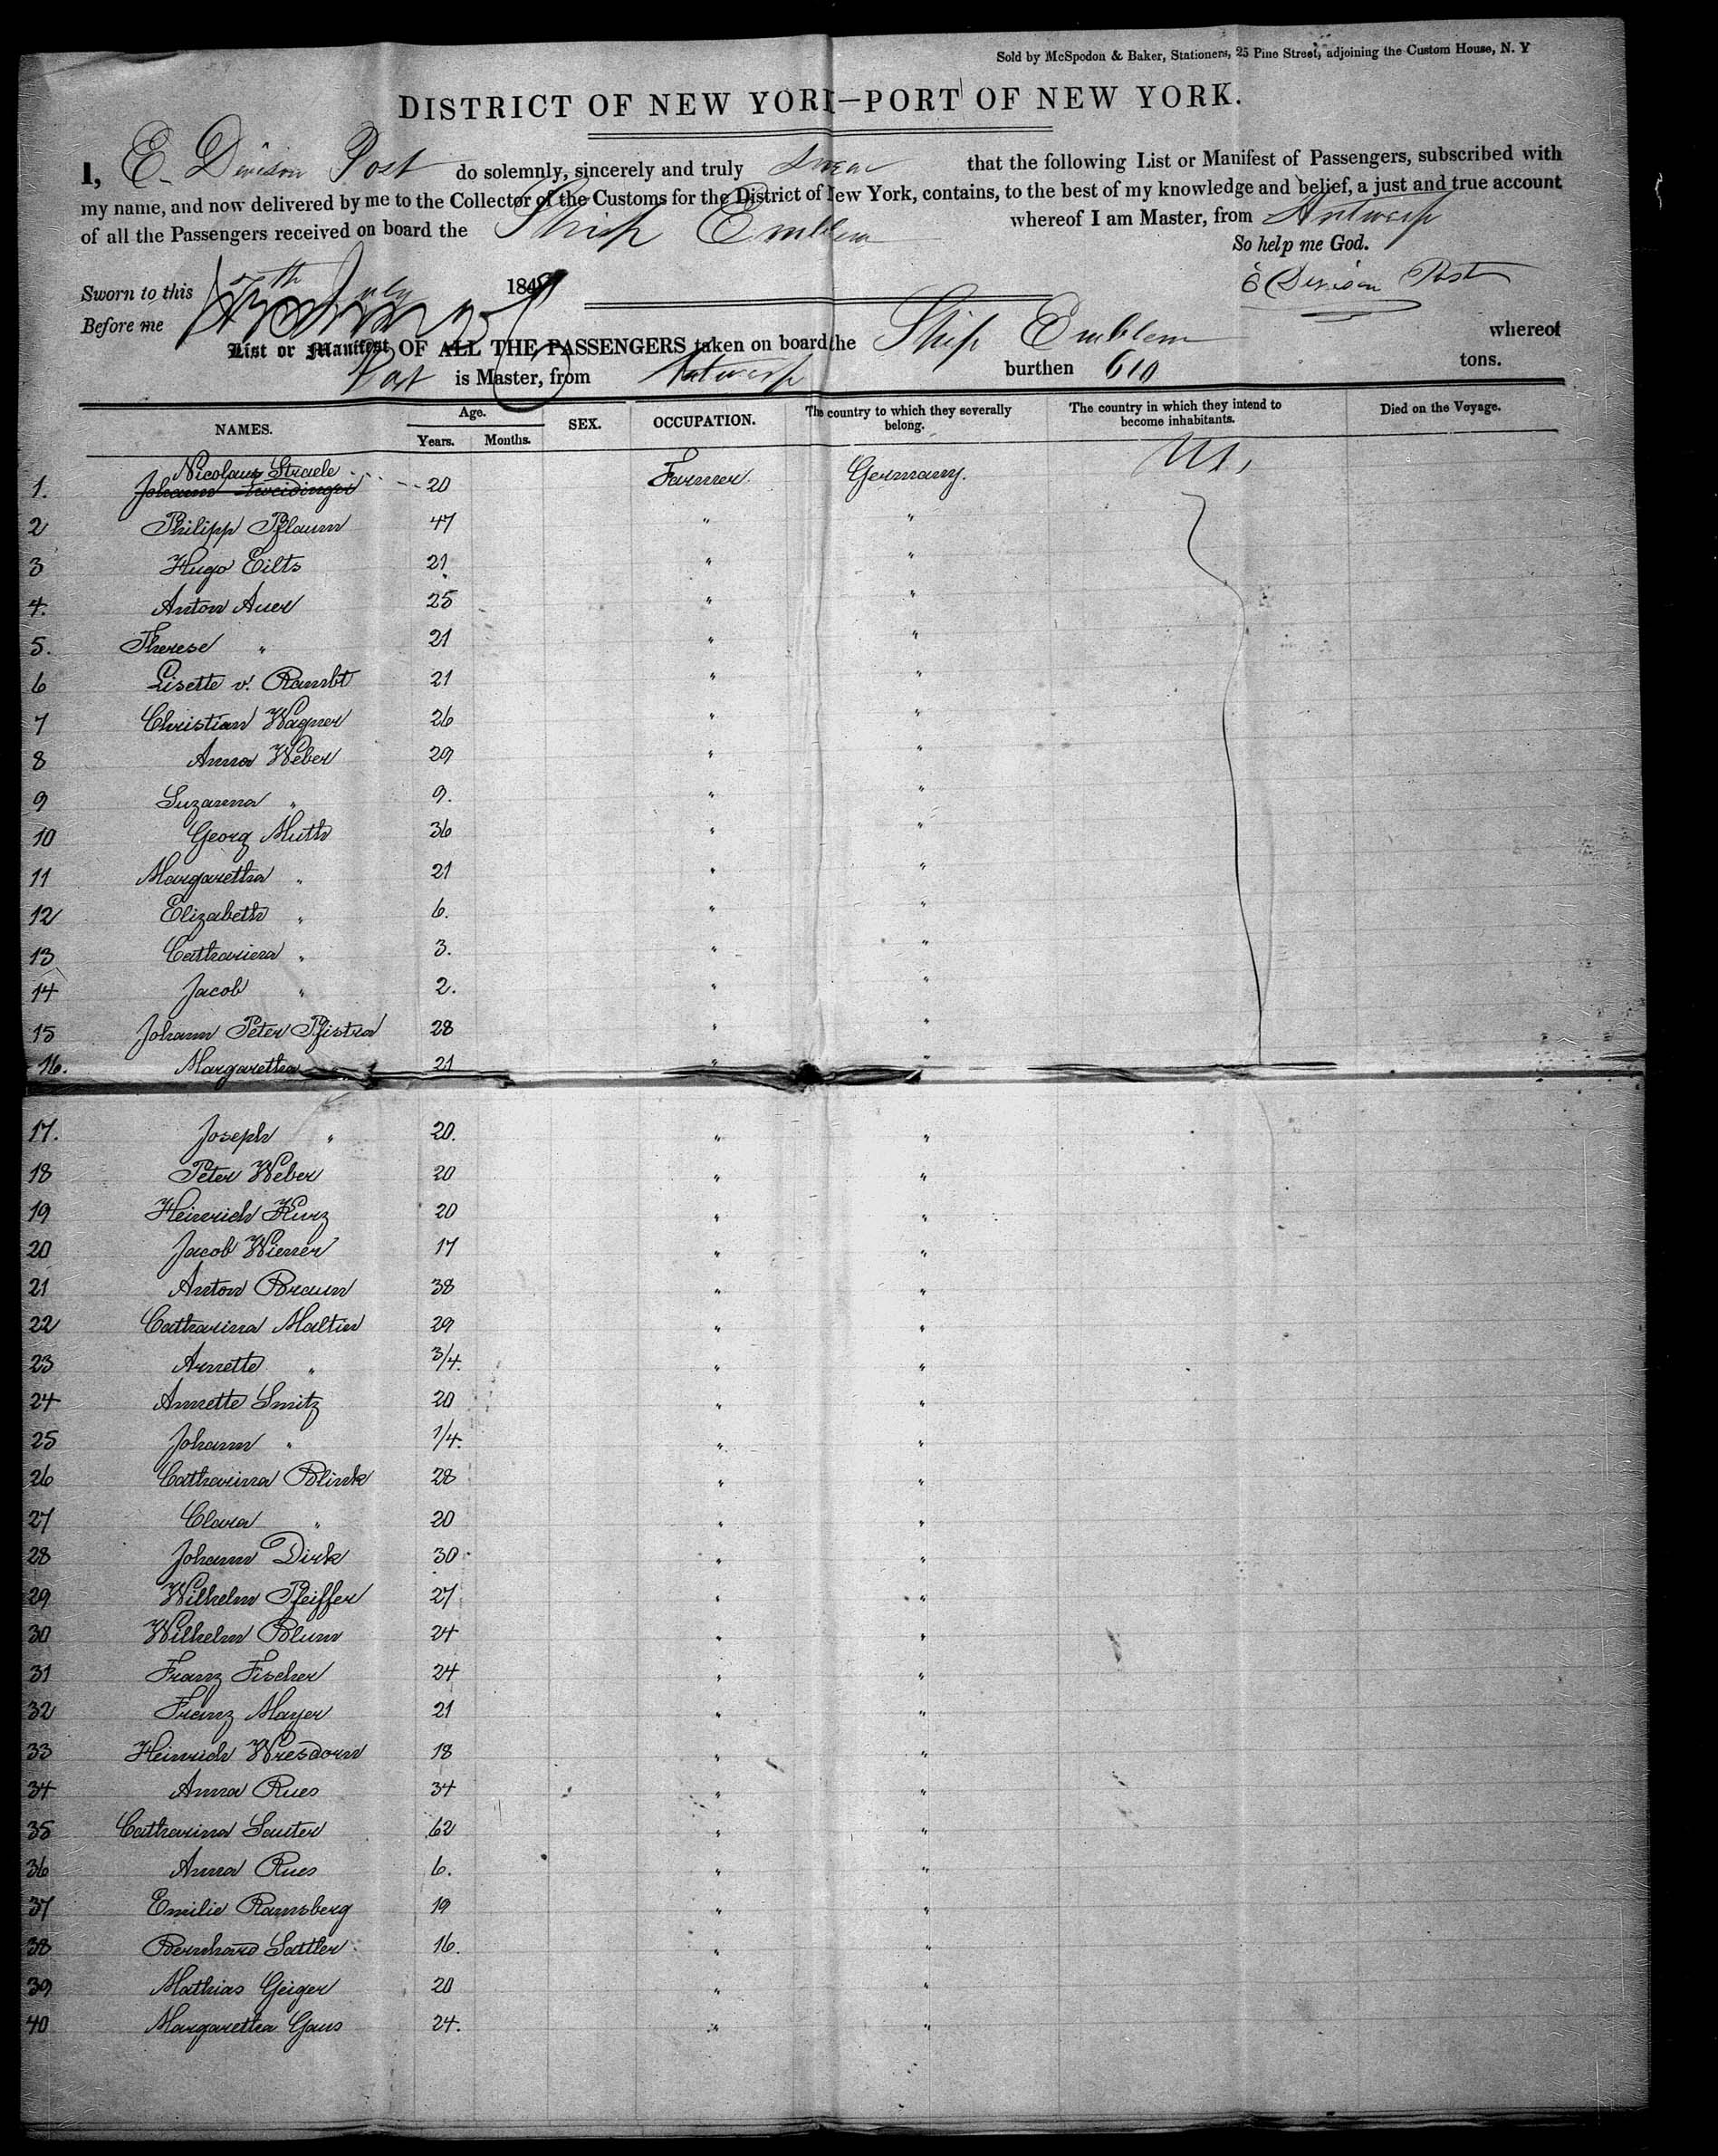 Sold by McSpedon & Baker, Stationers, 25 Pine Street, adjoining the Custom House, N. Y
DISTRICT OF NEW YORK—PORT OF NEW YORK.
I, E. Denison Post do solemnly, sincerely and truly swear that the following List or Manifest of Passengers, subscribed with
my name, and now delivered by me to the Collector of the Customs for the District of New York, contains, to the best of my knowledge and belief, a just and true account
of all the Passengers received on board the Ship Emblem whereof I am Master, from Antwerp
So help me God.
Sworn to this 7th July 184
E Denison Post
Before me
List or Manifest OF ALL THE PASSENGERS taken on board the Ship Emblem whereof
Post is Master, from Antwerp burthen 610 tons.
NAMES. Age. Years. Months. SEX. OCCUPATION. The country to which they severally belong. The country in which they intend to become inhabitants. Died on the Voyage.
Nicolaus Straele
1. Johann 20 Farmer. Germany. US,
2 Philipp Pflaum 47 " "
3 Hugo Eilts 21 " "
4. Anton Auer 25 " "
5. Therese " 21 " "
6 Lisette v. Rambt 21 " "
7 Christian Wagner 26 " "
8 Anna Weber 29 " "
9 Suzanna " 9. " "
10 Georg Muth 36 " "
11 Margaretha " 21 " "
12 Elizabeth " 6. " "
13 Catharina " 3. " "
14 Jacob " 2. " "
15 Johann Peter Pfistra 28 " "
16. Margaretha 21 " "
17. Joseph " 20. " "
18 Peter Weber 20 " "
19 Heinrich Kurz 20 " "
20 Jacob Wiener 17 " "
21 Anton Braun 38 " "
22 Catharina Maltin 29 " "
23 Annette " 3/4. " "
24 Annette Smitz 20 " "
25 Johann " 1/4. " "
26 Catharina Blink 28 " "
27 Clara " 20 " "
28 Johann Dirk 30 " "
29 Wilhelm Pfeiffer 27 " "
30 Wilhelm Blum 24 " "
31 Franz Fischer 24 " "
32 Franz Mayer 21 " "
33 Heinrich Wresdorn 18 " "
34 Anna Rues 34 " "
35 Catharina Sauter 62 " "
36 Anna Rues 6. " "
37 Emilie Ramsberg 19 " "
38 Bernhard Sattler 16. " "
39 Mathias Geiger 20 " "
40 Margaretha Gaus 24. " "